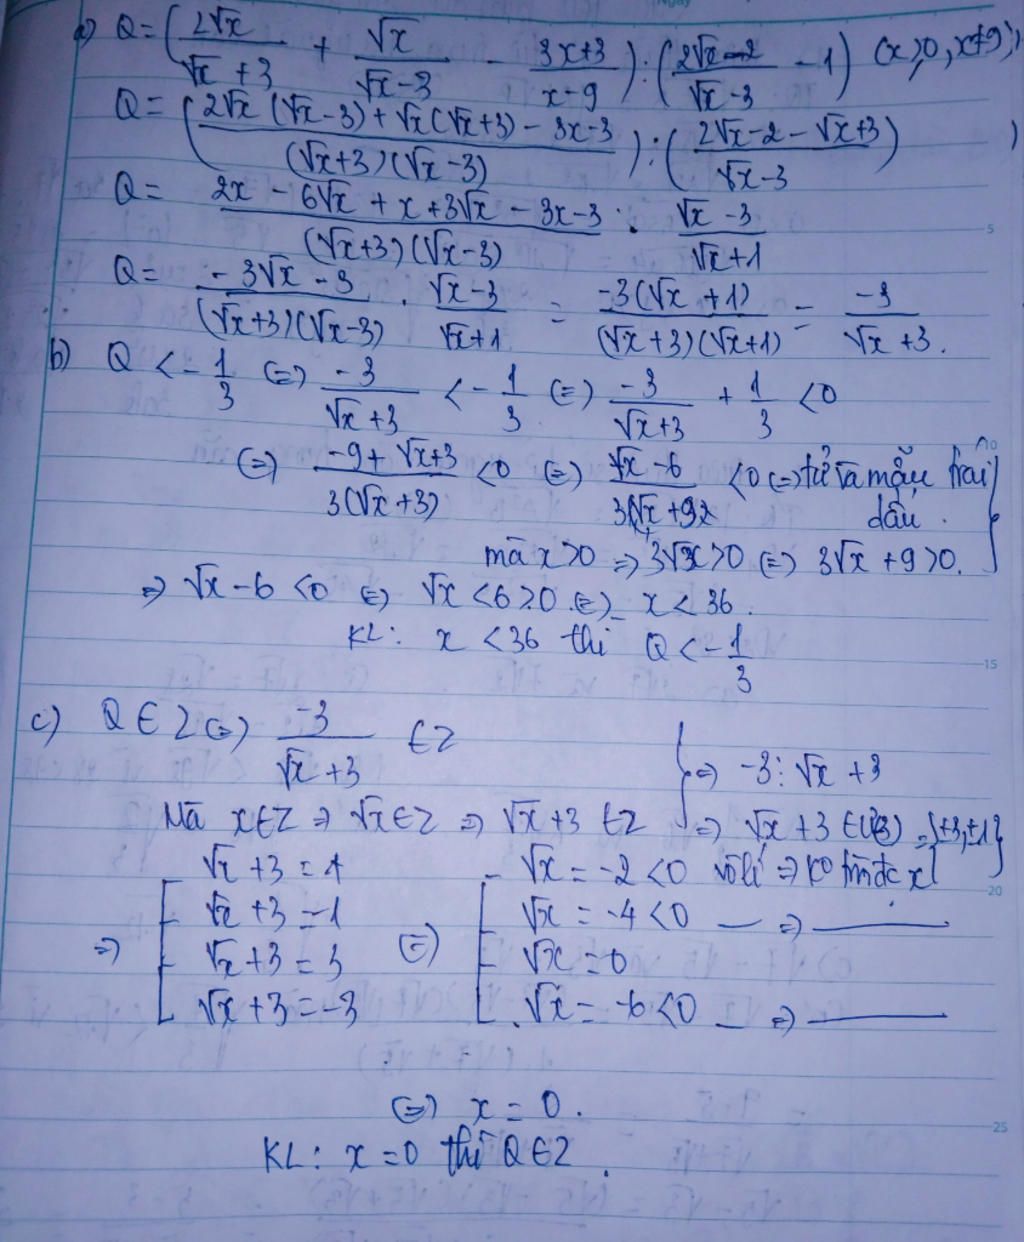 a) Q = ( 2√x / (√x + 3) + √x / (√x - 3) - (3x + 3) / (x - 9) ) : ( (2√x - 2) / (√x - 3) - 1 ) (x ≥ 0, x ≠ 9)
Q = ( (2√x (√x - 3) + √x (√x + 3) - 3x - 3) / ((√x + 3)(√x - 3)) ) : ( (2√x - 2 - √x + 3) / (√x - 3) )
Q = (2x - 6√x + x + 3√x - 3x - 3) / ((√x + 3)(√x - 3)) . (√x - 3) / (√x + 1)
Q = (-3√x - 3) / ((√x + 3)(√x - 3)) . (√x - 3) / (√x + 1) = -3(√x + 1) / ((√x + 3)(√x + 1)) = -3 / (√x + 3).
b) Q < -1/3 (=) -3 / (√x + 3) < -1/3 (=) -3 / (√x + 3) + 1/3 < 0
(=) (-9 + √x + 3) / (3(√x + 3)) < 0 (=) (√x - 6) / (3√x + 9) < 0 (=) tử và mẫu trái
dấu.
mà x > 0 => 3√x > 0 (=) 3√x + 9 > 0.
=> √x - 6 < 0 (=) √x < 6 (=) x < 36.
KL: x < 36 thì Q < -1/3
c) Q ∈ Z (=) -3 / (√x + 3) ∈ Z
=> -3 ⋮ √x + 3
Mà x ∈ Z => √x ∈ Z => √x + 3 ∈ Z => √x + 3 ∈ Ư(3) = {±3, ±1}
√x + 3 = 1 √x = -2 < 0 vô lí => ko tìm đc x
=> √x + 3 = -1 (=) √x = -4 < 0 — => —
√x + 3 = 3 √x = 0
√x + 3 = -3 √x = -6 < 0 — => —
(=) x = 0.
KL: x = 0 thì Q ∈ Z.